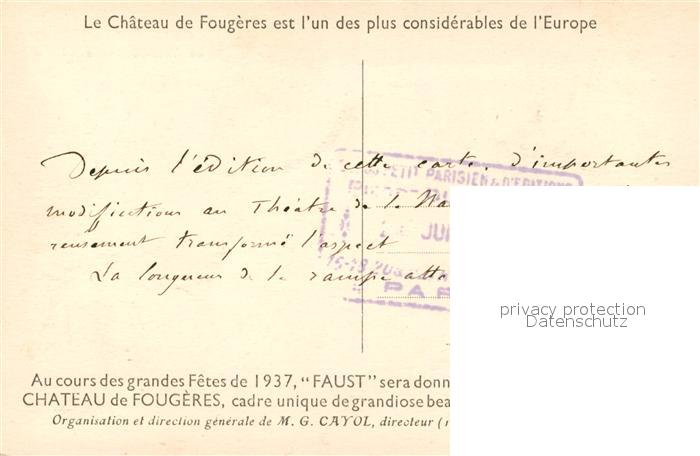 Le Château de Fougères est l'un des plus considérables de l'Europe
Depuis l'édition de cette carte, d'importantes
modifications au Théâtre de la Na
reusement transformé l'aspect
La longueur de la rampe atte
PETIT PARISIEN & D'EDITIONS
JUI
PAR
privacy protection
Datenschutz
Au cours des grandes Fêtes de 1937, "FAUST" sera donn
CHATEAU de FOUGÈRES, cadre unique de grandiose bea
Organisation et direction générale de M. G. CAYOL, directeur (1